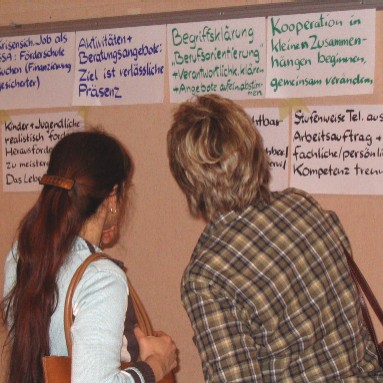 Krisensich. Job als
SSA: Förderschule
suchen (Finanzierung
gesicherter)
Aktivitäten +
Beratungsangebote:
Ziel ist verlässliche
Präsenz
Begriffsklärung
"Berufsorientierung"
+ Verantwortliche klären
+ Angebote aufeinabstim-
men
Kooperation in
kleinen Zusammen-
hängen beginnen,
gemeinsam verändern
Kinder + Jugendliche
realistisch
zu meistern
Das
Stufenweise Tel. aus
Arbeitsauftrag +
fachliche/persönli
Kompetenz